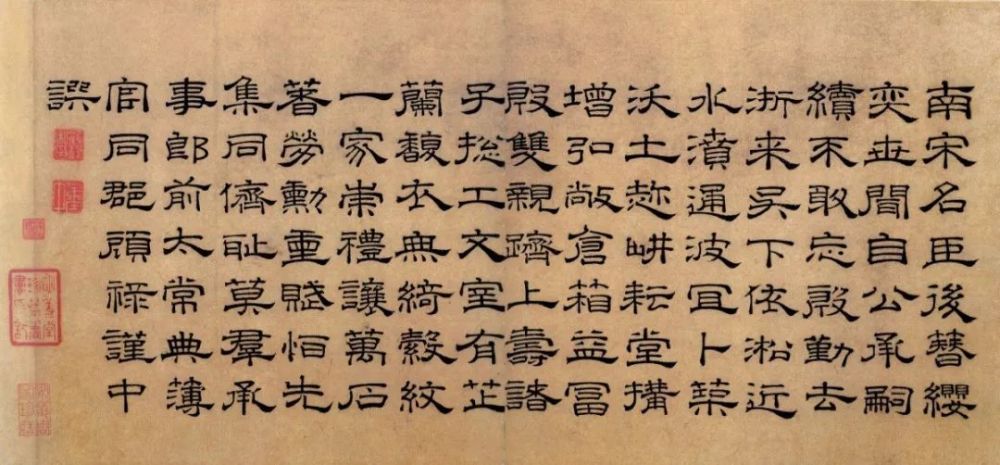 南宋名臣後簪纓
奕世聞自公承嗣
續不敢忘殷勤去
浙来吳下依淞近
水濆通波冝卜築
沃土趂畊耘堂搆
增弘敞倉箱益冨
殷雙親躋上壽諸
子摠工文室有芷
蘭馥衣無綺縠紋
一家崇禮讓萬石
著勞勳重賦怕先
集同儕耻莫羣承
事郎前太常典薄
官同郡顧祿謹中
譔